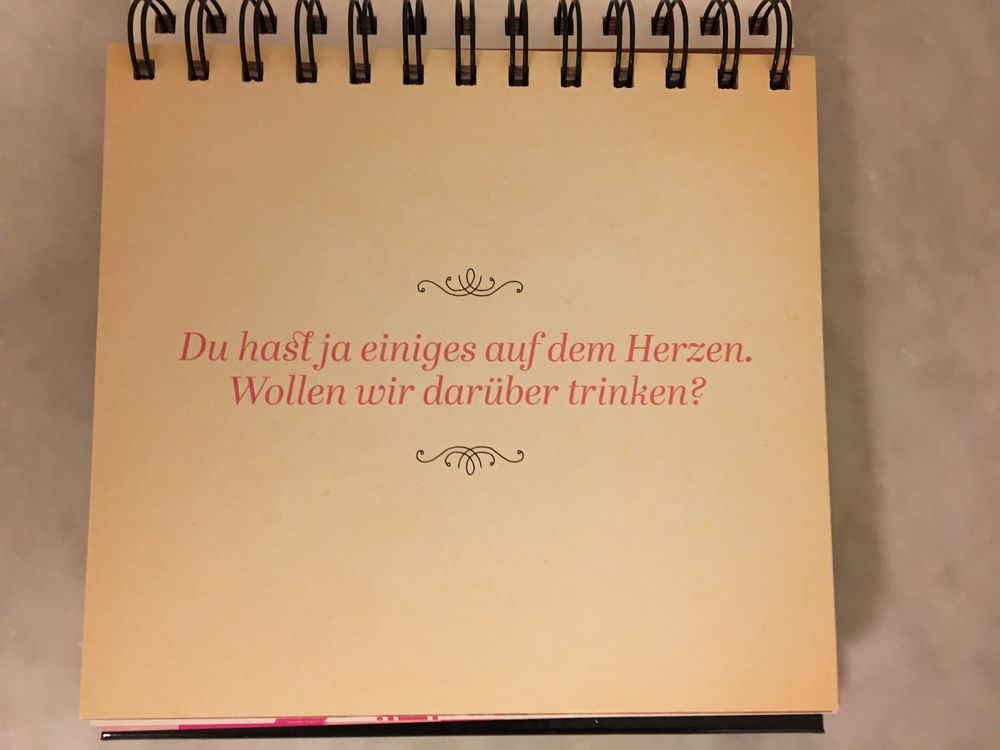 Du hast ja einiges auf dem Herzen.
Wollen wir darüber trinken?